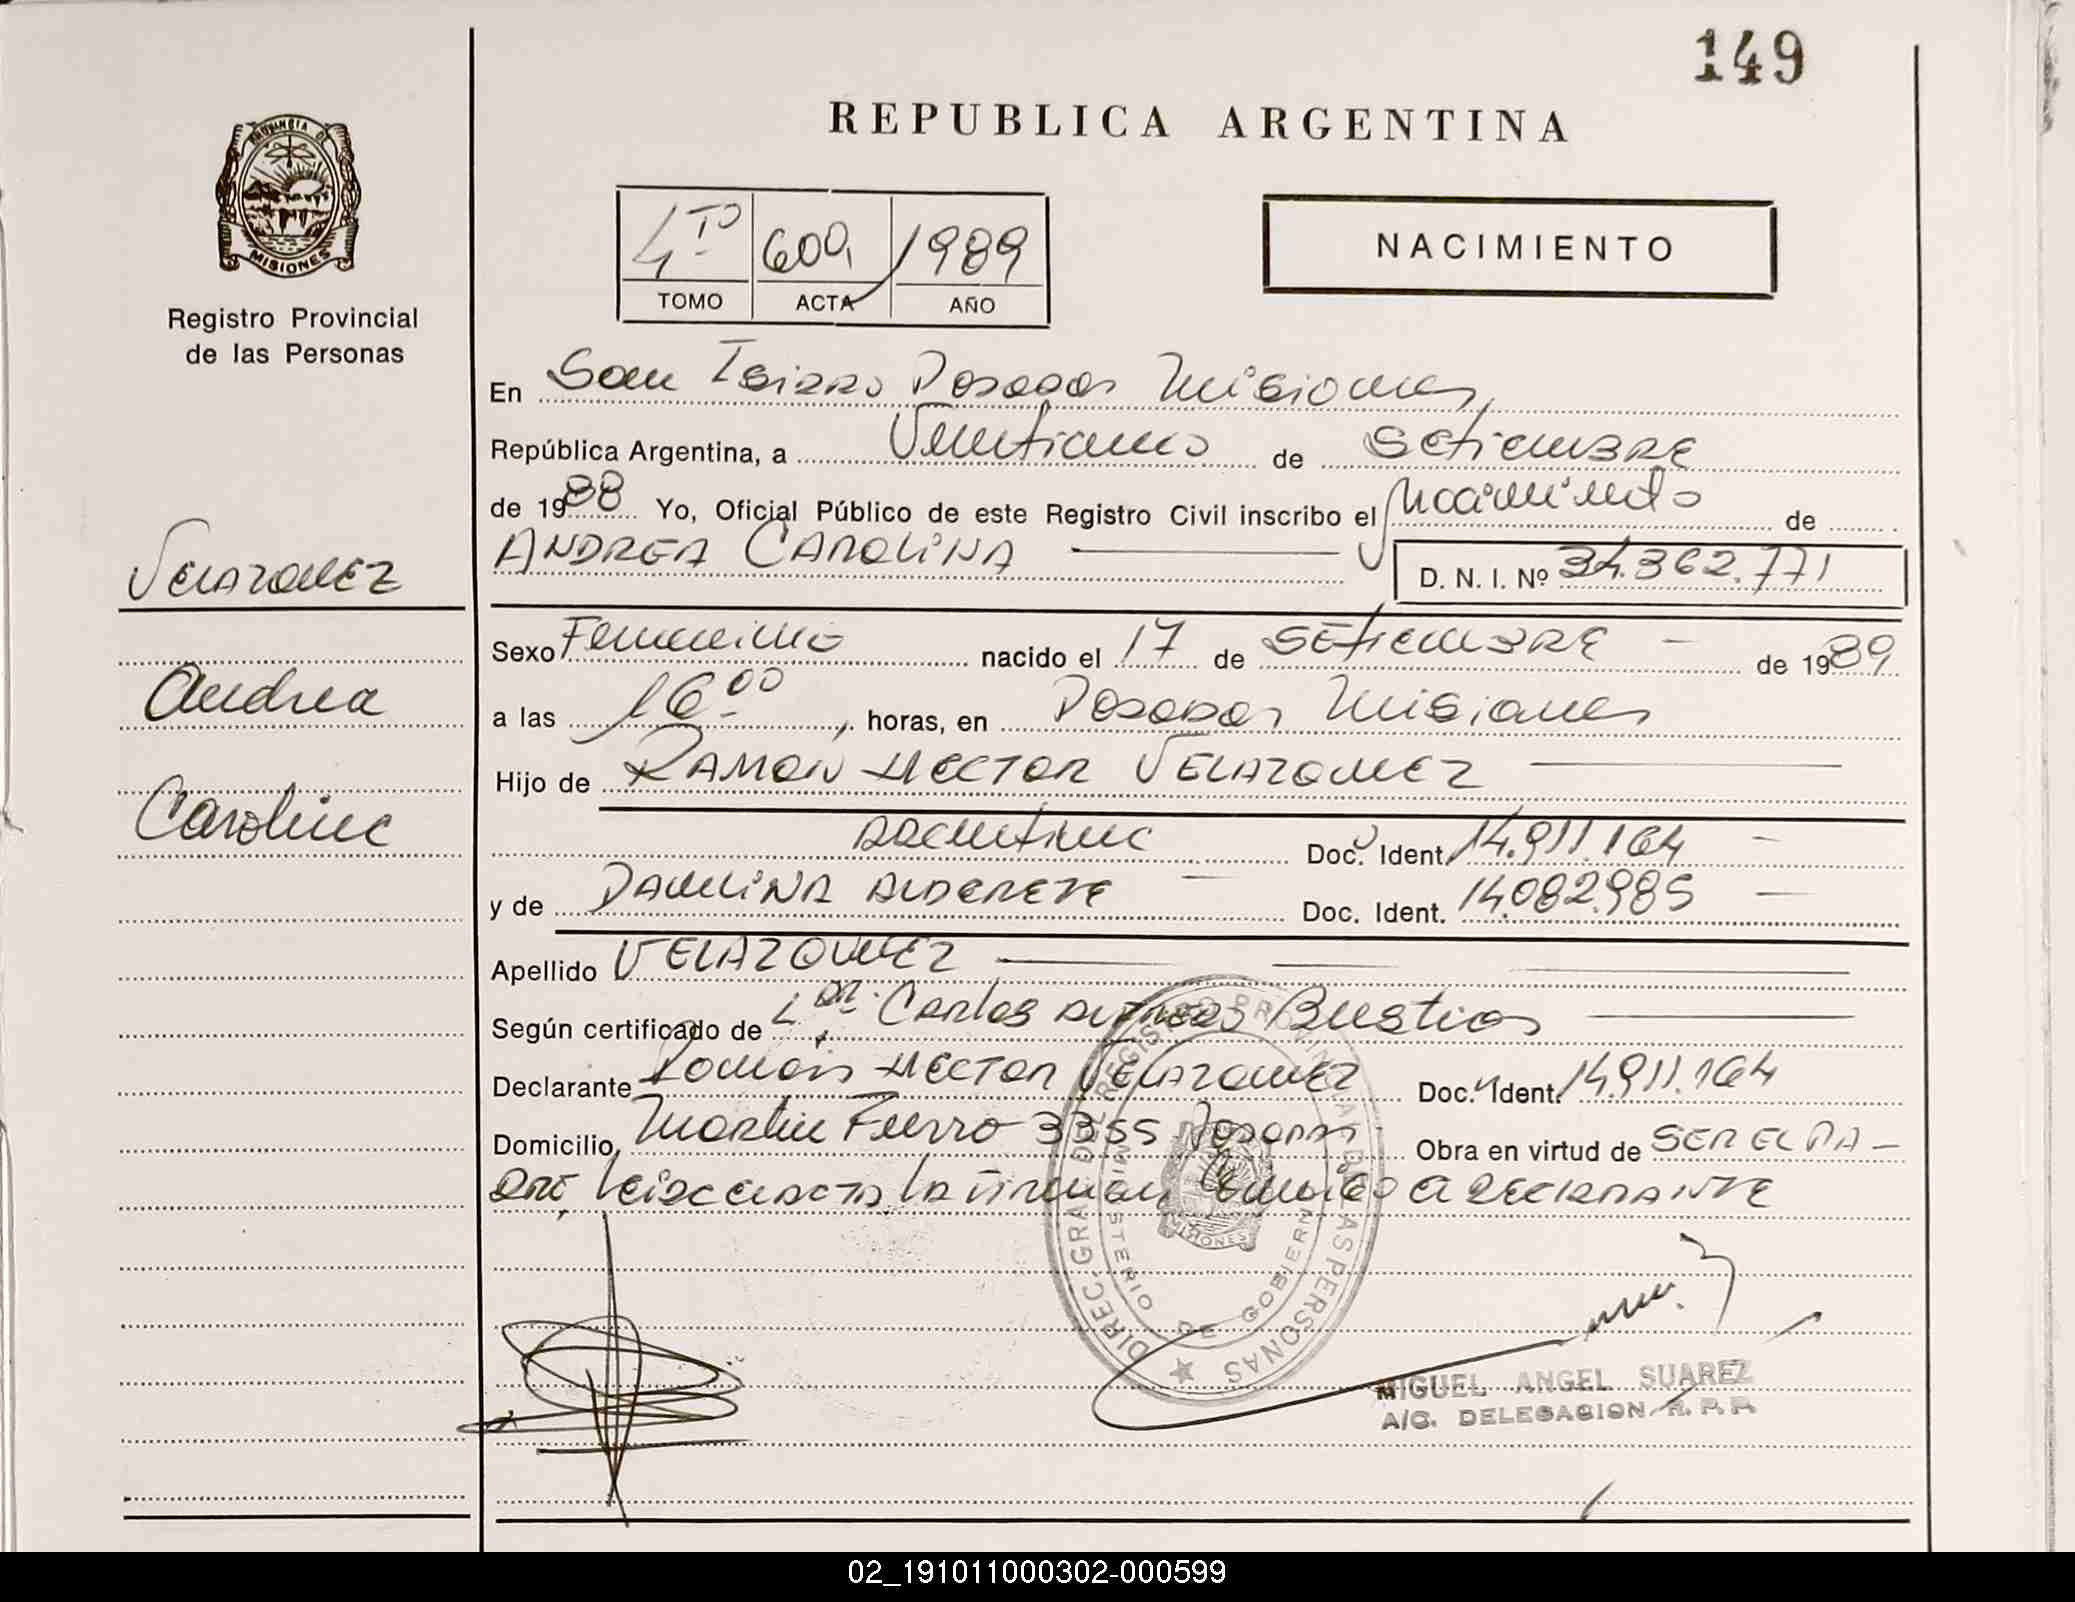 149
REPUBLICA ARGENTINA
PROVINCIA DE
MISIONES
Registro Provincial
de las Personas
4TO 609 1989
TOMO ACTA AÑO
NACIMIENTO
En San Isidro Posadas Misiones
República Argentina, a Veintiuno de Setiembre
de 1989 Yo, Oficial Público de este Registro Civil inscribo el Nacimiento de
ANDREA CAROLINA D. N. I. Nº 34.362.771
VELAZQUEZ
Andrea
Carolina
Sexo Femenino nacido el 17 de SETIEMBRE de 1989
a las 16 00 horas, en Posadas Misiones
Hijo de RAMON HECTOR VELAZQUEZ
argentino Doc. Ident. 14.911.164
y de PAULINA ALDERETE Doc. Ident. 14.082.985
Apellido VELAZQUEZ
Según certificado de Dr. Carlos Bustios
Declarante Ramón HECTOR VELAZQUEZ Doc. Ident. 14.911.164
Domicilio Martin Fierro 3355 Posadas Obra en virtud de SER EL PA-
DRE, leida el acta la firman conmigo el DECLARANTE
DIREC. GRAL. DEL REGISTRO PROVINCIAL DE LAS PERSONAS
MINISTERIO DE GOBIERNO
MISIONES
MIGUEL ANGEL SUAREZ
A/C. DELEGACION R. P. P.
02_191011000302-000599